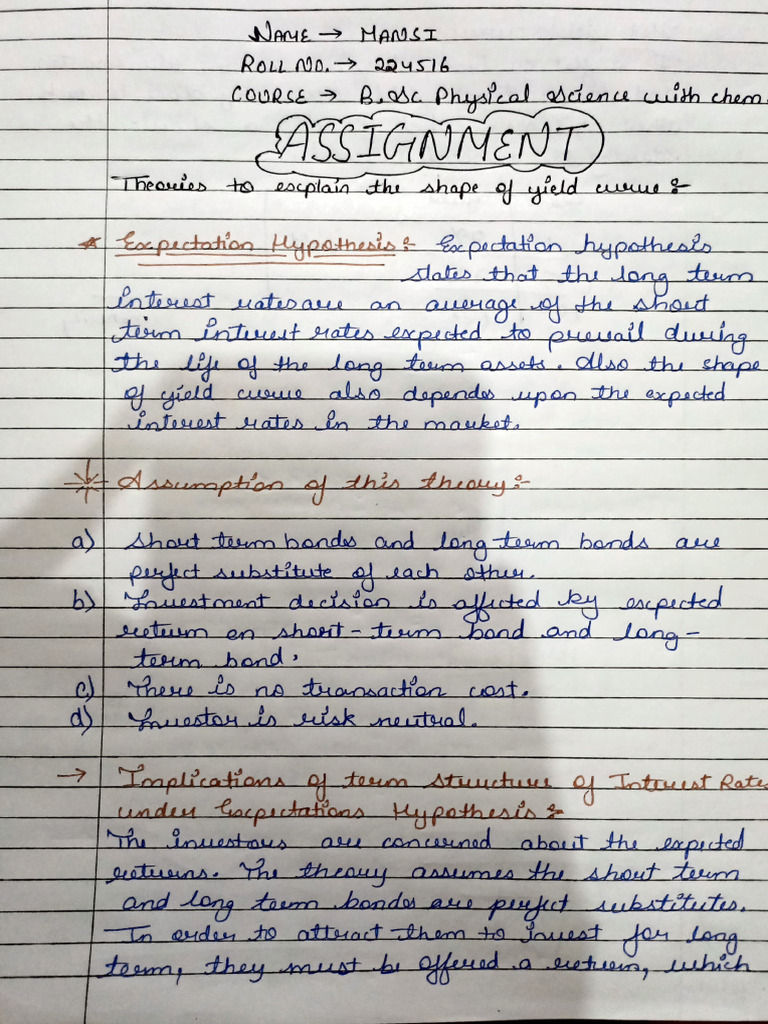 NAME → MANSI
ROLL NO. → 224516
COURSE → B.Sc Physical Science with chem.
ASSIGNMENT
Theories to explain the shape of yield curve :-
* Expectation Hypothesis :- Expectation hypothesis
states that the long term
interest rates are an average of the short
term interest rates expected to prevail during
the life of the long term assets. Also the shape
of yield curve also depends upon the expected
interest rates in the market.
Assumption of this theory :-
a) Short term bonds and long-term bonds are
perfect substitute of each other.
b) Investment decision is affected by expected
return on short-term bond and long-
term bond.
c) There is no transaction cost.
d) Investor is risk neutral.
→ Implications of term structure of Interest Rates
under Expectations Hypothesis :-
The investors are concerned about the expected
returns. The theory assumes the short term
and long term bonds are perfect substitutes.
In order to attract them to invest for long
term, they must be offered a return, which